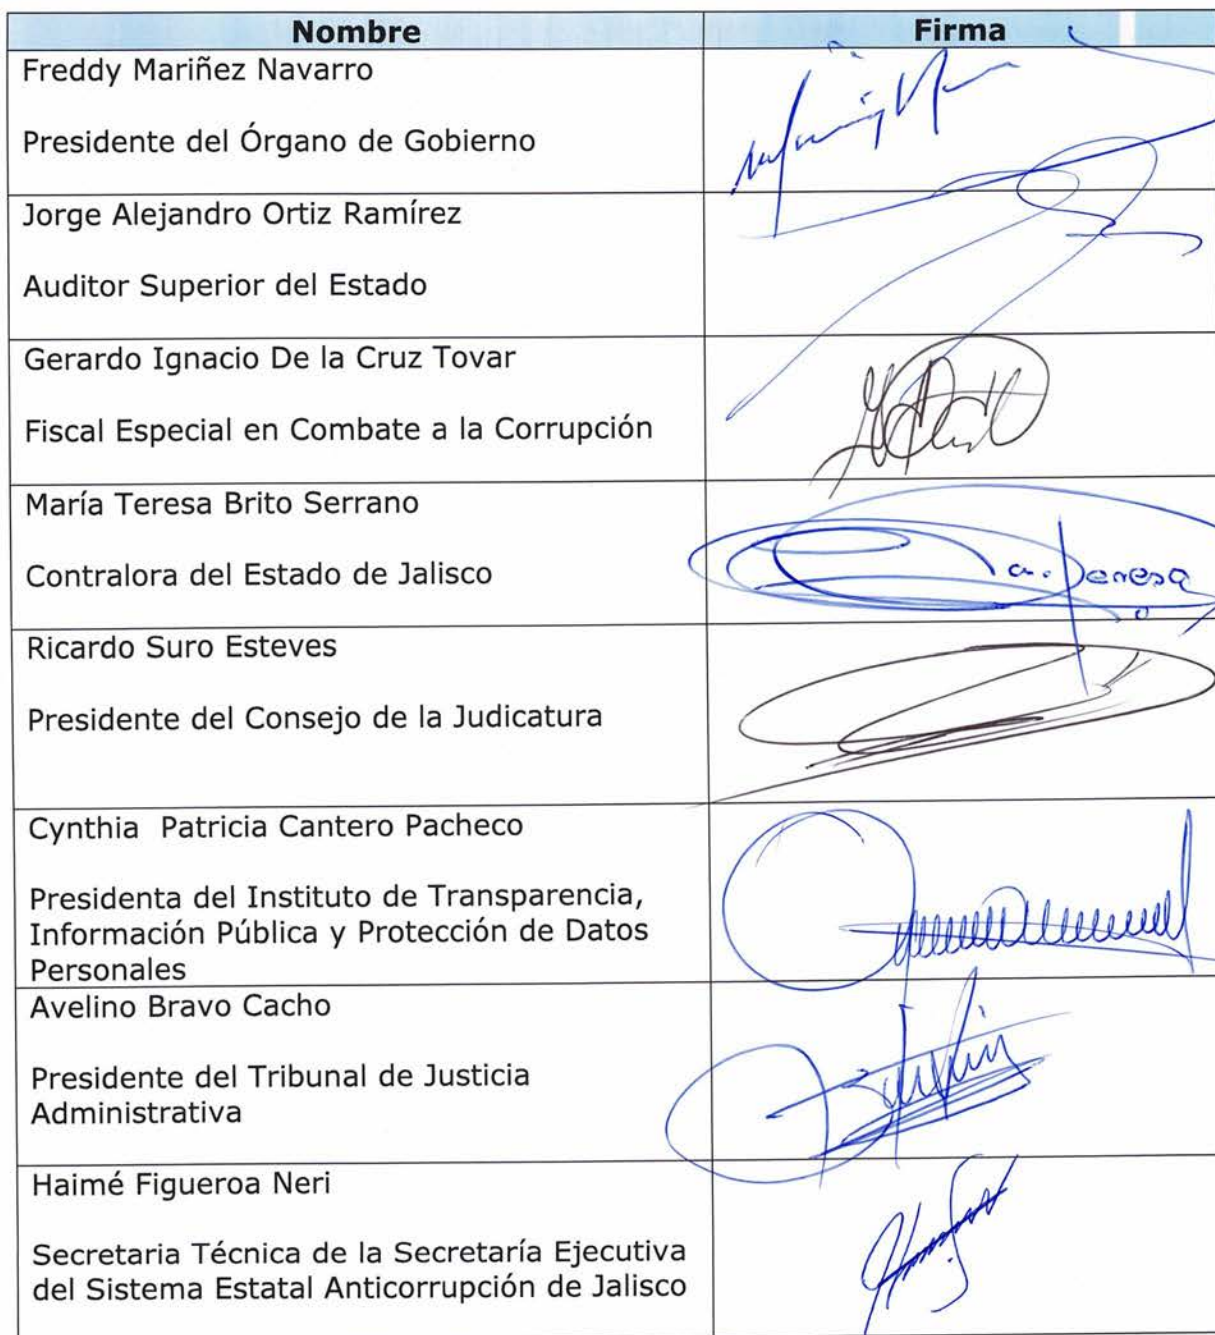 Nombre Firma
Freddy Mariñez Navarro
Presidente del Órgano de Gobierno
Jorge Alejandro Ortiz Ramírez
Auditor Superior del Estado
Gerardo Ignacio De la Cruz Tovar
Fiscal Especial en Combate a la Corrupción
María Teresa Brito Serrano
Contralora del Estado de Jalisco
Ricardo Suro Esteves
Presidente del Consejo de la Judicatura
Cynthia Patricia Cantero Pacheco
Presidenta del Instituto de Transparencia,
Información Pública y Protección de Datos
Personales
Avelino Bravo Cacho
Presidente del Tribunal de Justicia
Administrativa
Haimé Figueroa Neri
Secretaria Técnica de la Secretaría Ejecutiva
del Sistema Estatal Anticorrupción de Jalisco